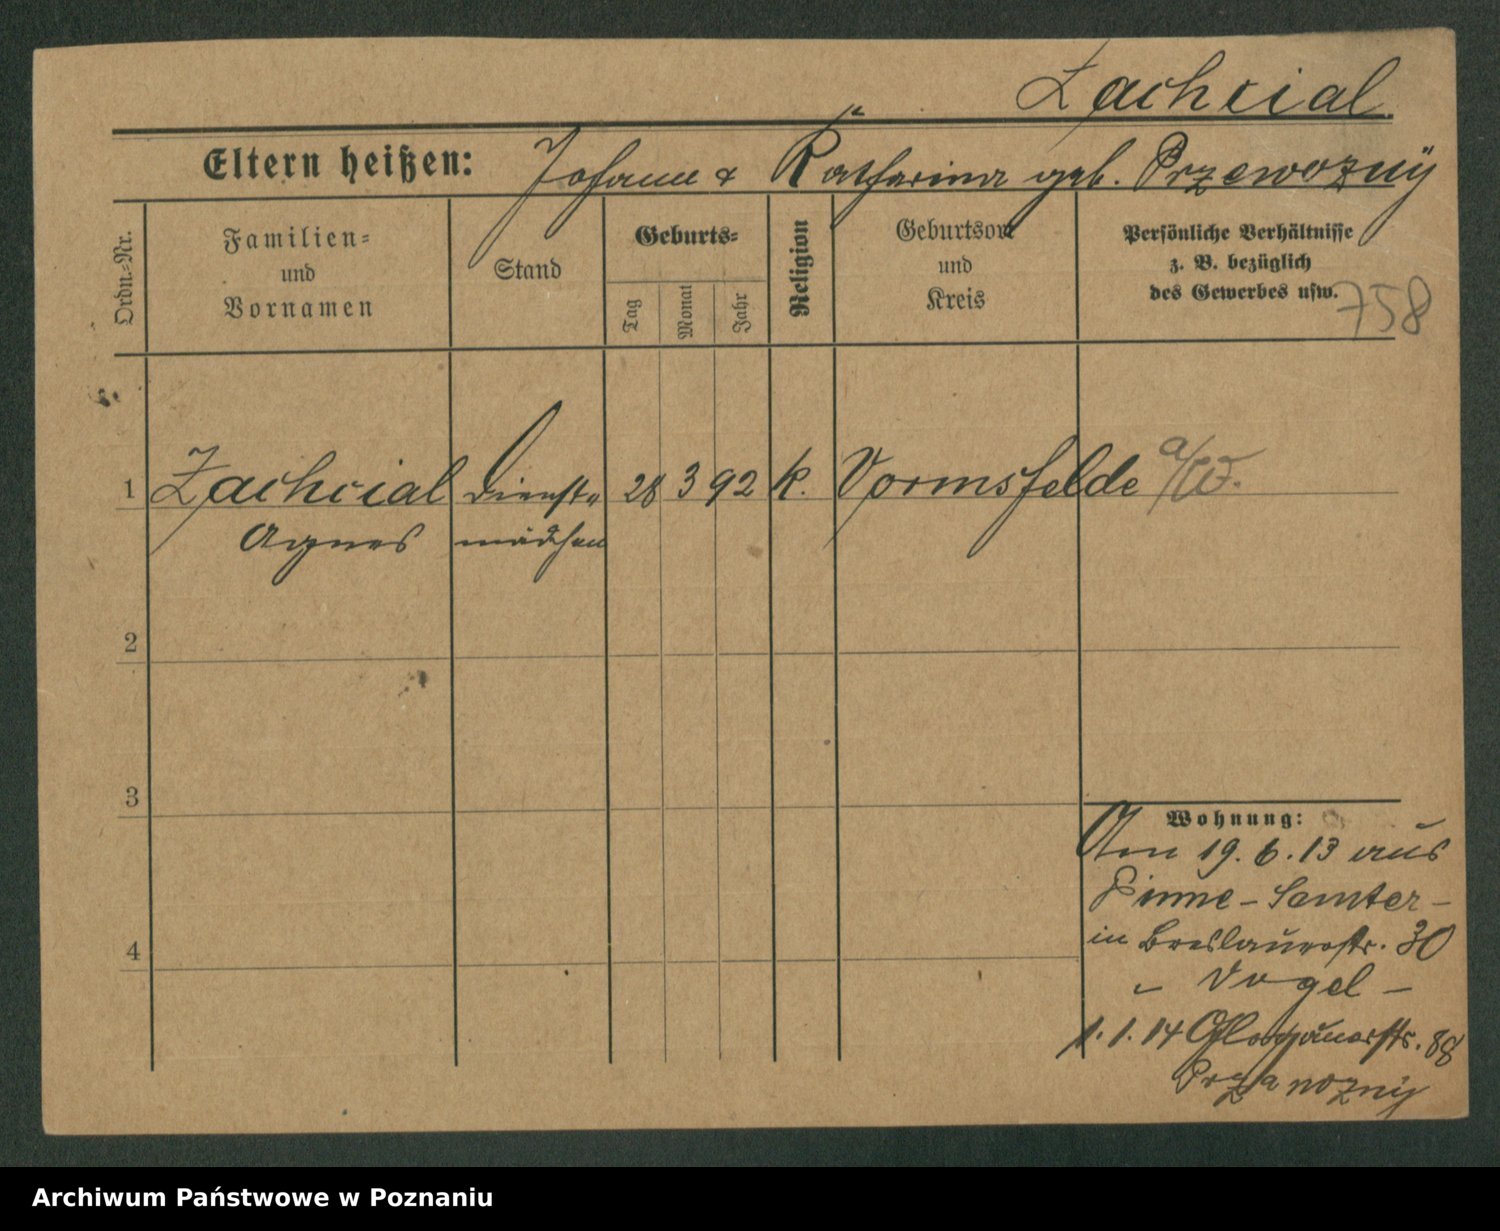 Zachcial.
Eltern heißen: Johann & Katharina geb. Przewozny
Ordn.=Nr.
Familien=
und
Vornamen
Stand
Geburts=
Tag
Monat
Jahr
Religion
Geburtsort
und
Kreis
Persönliche Verhältnisse
z. B. bezüglich
des Gewerbes usw.
758
1 Zachcial Dienst= 28 3 92 k. Vormsfelde a/W.
Agnes mädchen
2
3
Wohnung:
Am 19.6.13 aus
Pinne - Samter -
4 in Breslauerstr. 30
Vogel -
1.1.14 Glogauerstr. 88
Przanozny
Archiwum Państwowe w Poznaniu